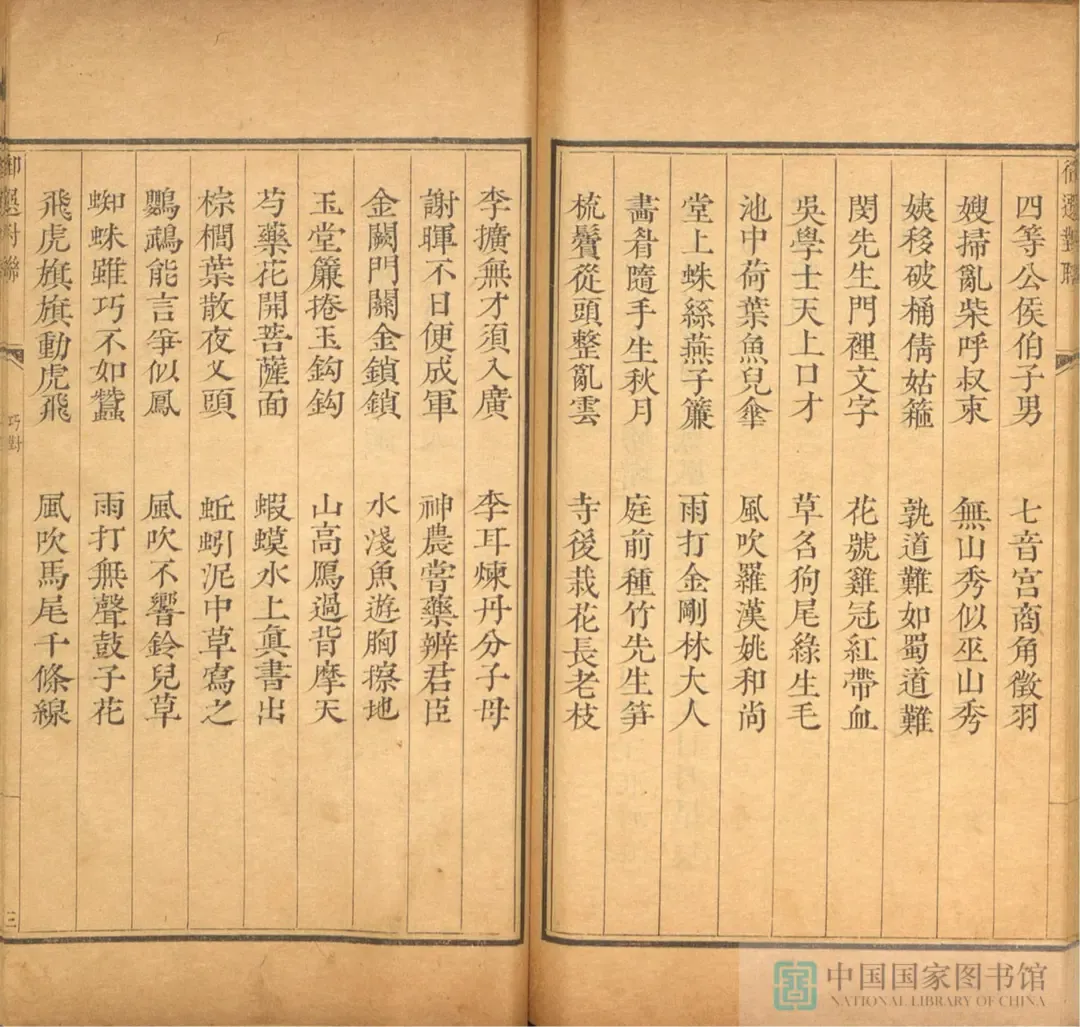 四等公侯伯子男 七音宮商角徵羽
嫂掃亂柴呼叔束 無山秀似巫山秀
姨移破桶倩姑箍 孰道難如蜀道難
閔先生門裡文字 花號雞冠紅帶血
吳學士天上口才 草名狗尾綠生毛
池中荷葉魚兒傘 風吹羅漢姚和尚
堂上蛛絲燕子簾 雨打金剛林大人
畵眉隨手生秋月 庭前種竹先生笋
梳鬢從頭整亂雲 寺後栽花長老枝
李擴無才須入廣 李耳煉丹分子母
謝暉不日便成軍 神農嘗藥辨君臣
金闕門關金鎖鎖 水淺魚遊胸擦地
玉堂簾捲玉鈎鈎 山高鴈過背摩天
芍藥花開菩薩面 蝦蟆水上眞書出
棕櫚葉散夜叉頭 蚯蚓泥中草寫之
鸚鵡能言爭似鳳 風吹不響鈴兒草
蜘蛛雖巧不如蠶 雨打無聲鼓子花
飛虎旗旗動虎飛 風吹馬尾千條線
御選對聯
巧對
三
中国国家图书馆
NATIONAL LIBRARY OF CHINA